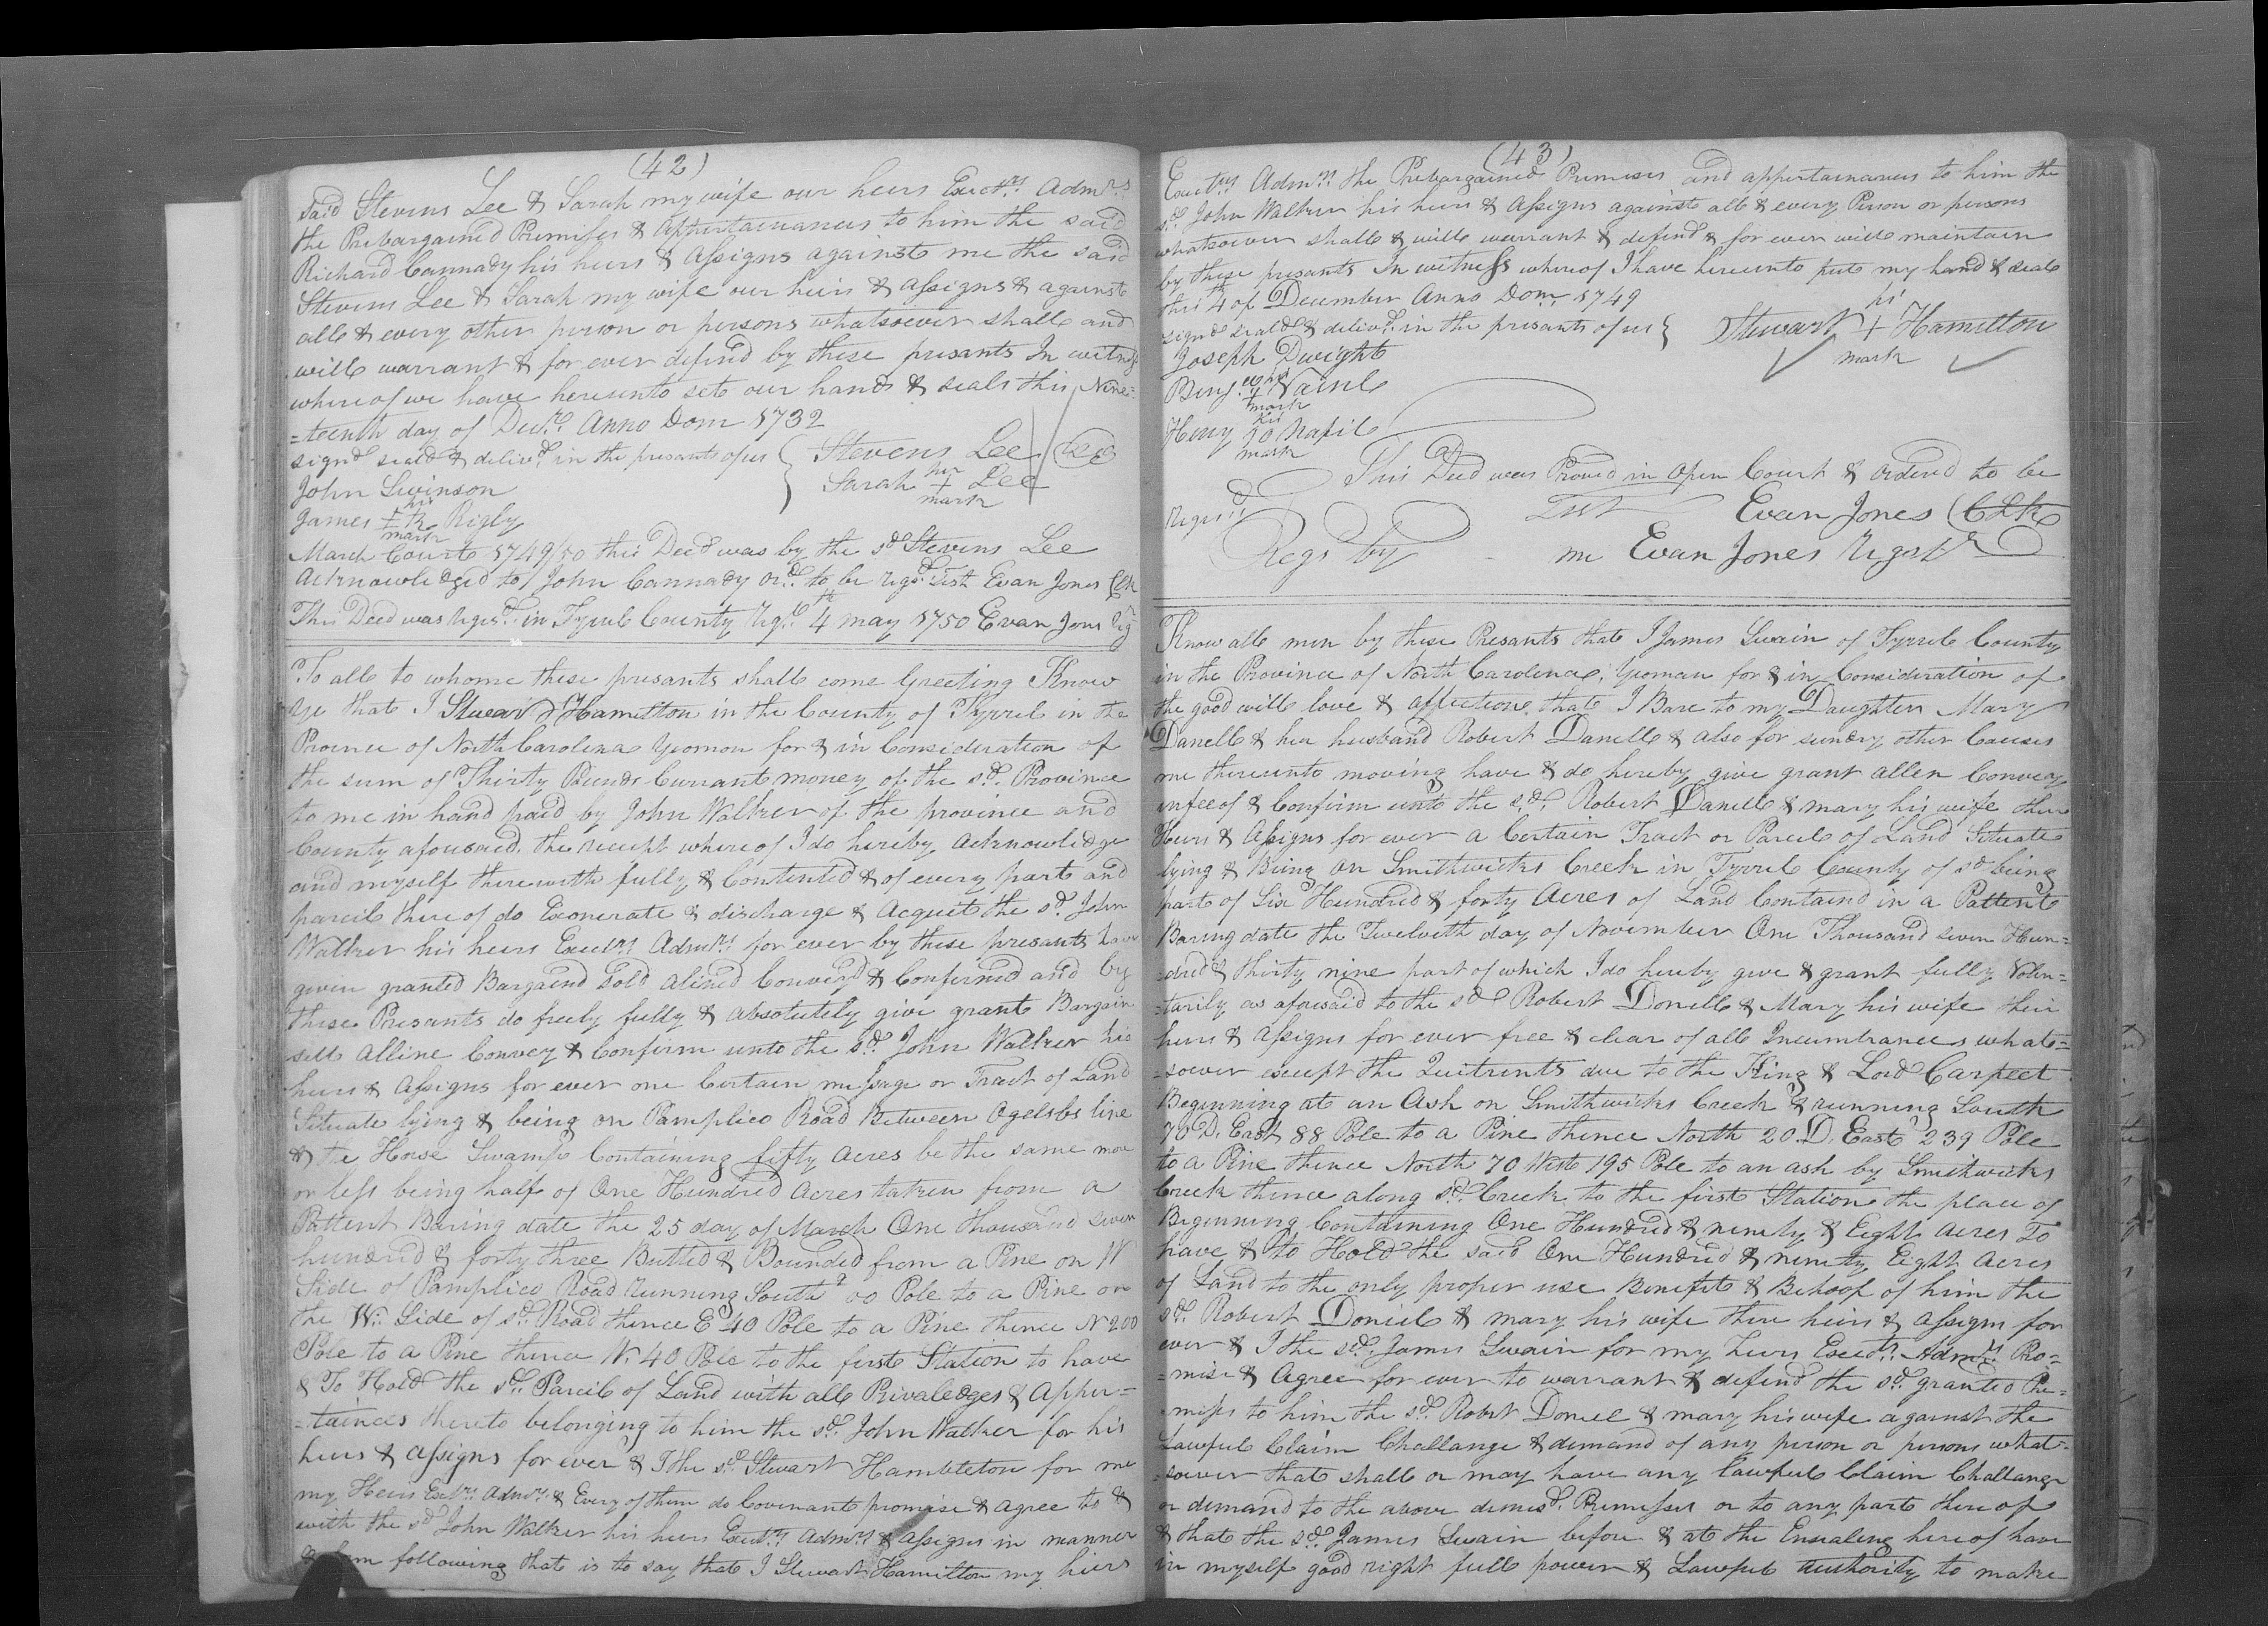 (42)
said Stevens Lee & Sarah my wife our heirs Exectrs Admrs
the Prebargained Premises & Appurtainances to him the said
Richard Cannady his heirs & Assigns against me the said
Stevens Lee & Sarah my wife our heirs & Assigns & against
all & every other person or persons whatsoever shall and
will warrant & for ever defend by these presants In witness
where of we have hereunto set our hands & seals this Nine=
=teenth day of Decr. Anno Dom 1732
signd seald & delivd. in the presants of us { Stevens Lee
John Swinson Sarah + Lee
her
mark
James + R Rigby
his
mark
March Court 1749/50 this Deed was by the sd Stevens Lee
Acknowledged to John Cannady ord. to be regd. Test Evan Jones Clk
This Deed was regisd. in Tyrrel County Regr. 4th may 1750 Evan Jones Reg
To all to whome these presants shall come Greeting Know
ye that I Steward Hamilton in the County of Tyrrel in the
Province of North Carolina yeoman for & in Consideration of
the sum of Thirty Pounds Currant money of the sd. Province
to me in hand paid by John Walker of the province and
County aforesaid. the receipt where of I do hereby acknowledge
and myself therewith fully & Contented & of every part and
parcil there of do Exonerate & discharge & Acquit the sd. John
Walker his heirs Exectrs Admrs for ever by these presants have
given granted Bargaind sold alined Conveyd & Confirmed and by
these Presants do freely fully & absolutely give grant Bargain
sell alline Convey & Confirm unto the sd. John Walker his
heirs & Assigns for ever one Certain message or Tract of Land
Situate lying & being on Pamplico Road Between Ogelsbs line
& the Horse Swamp Containing fifty acres be the same more
or less being half of One Hundred acres taken from a
Pattent Baring date the 25 day of March One thousand seven
hundred & forty three Butted & Bounded from a Pine on W
Side of Pamplico Road running South 200 Pole to a Pine on
the W. Side of sd. Road thence E 40 Pole to a Pine thence N 200
Pole to a Pine thence W. 40 Pole to the first Station to have
& To Hold the sd. Parcil of Land with all Privaledges & Apper=
=tainces thereto belonging to him the sd. John Walker for his
heirs & Assigns for ever & I the sd. Stewart Hambleton for me
my Heirs Exctrs. Admrs. & Every of them do Covenant promise & agree to &
with the sd John Walker his heirs Exectrs Admrs & Assigns in manner
& form following that is to say that I Stewart Hamilton my heirs
(43)
Exectrs Admrs. the Prebargained Premises and appurtainances to him the
sd. John Walker his heirs & Assigns against all & every Person or persons
whatsoever shall & will warrant & defend & for ever will maintain
by these presants In witness whereof I have hereunto put my hand & seal
this 4th of December Anno Dom 1749
signd seald & delivd. in the presants of us { Stewart + Hamilton
his
mark
Joseph Dwight
Benj. + Vainl
his
mark
Henry
his
mark
This Deed was Proved in open Court & ordered to be
Regisd. Test Evan Jones Clk
Regs by me Evan Jones Regstr
Know all men by these Presants that I James Swain of Tyrrel County
in the Province of North Carolena, yeoman for & in Consideration of
the good will love & affection that I Bare to my Daughter Mary
Danell & her husband Robert Danell & also for sundry other Causes
me thereunto moving have & do hereby give grant allen Convey
infeeof & Confirm unto the sd. Robert Danell & mary his wife there
Heirs & Assigns for ever a Certain Tract or Parcel of Land Situate
lying & Being on Smithwicks Creek in Tyrrel County of sd being
part of Six Hundred & forty Acres of Land Containd in a Pattent
Baring date the Twelveth day of November One Thousand seven Hun=
=dred & thirty nine part of which I do hereby give & grant fully Volin=
=tarily as aforesaid to the sd Robert Donell & Mary his wife their
heirs & Assigns for ever free & clear of all Incumbrances what=
=soever except the Quitrents due to the King & Lord Carpect
Beginning at an Ash on Smithwicks Creek & running South
70 D. East 88 Pole to a Pine thence North 20 D. East 239 Pole
to a Pine thence North 70 West 195 Pole to an ash by Smithwicks
Creek thence along sd. Creek to the first Station the place of
Beginning Containing One Hundred & ninety & Eight acres To
have & to Hold the said One Hundred & ninety Eight Acres
of Land to the only proper use Benefit & Behoof of him the
sd. Robert Doniel & mary his wife there heirs & assigns for
ever & I the sd. James Swain for my heirs Exectrs. Admrs Pro=
=mise & Agree for ever to warrant & defend the sd. granted Pre=
=mises to him the sd. Robert Doniel & mary his wife against the
Lawful Claim Challange & demand of any person or persons what=
=soever that shall or may have any lawful Claim Challange
or demand to the above demisd. Premisses or to any part there of
& that the sd. James Swain before & at the Ensealing here of have
in myself good right full power & Lawful authority to make